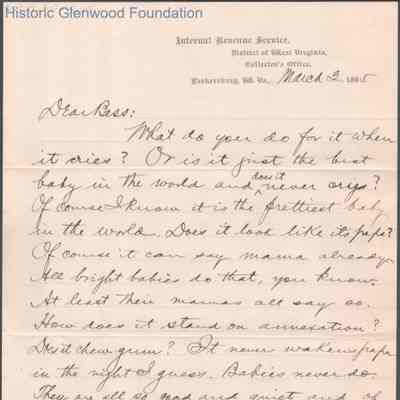 Historic Glenwood Foundation
Internal Revenue Service,
District of West Virginia,
Collector's Office,
Parkersburg, W. Va., March 2 189
Dear Bess:
What do you do for it when
it cries? Or is it just the best
baby in the world and does it never crys?
Of course I know it is the prettiest baby
in the world. Does it look like its papa?
Of course it can say mama already.
All bright babies do that, you know.
At least their mamas all say so.
How does it stand on annexation?
Does it chew gum? It never wakens papa
in the night I guess. Babies never do.
They are all so good and quiet and of